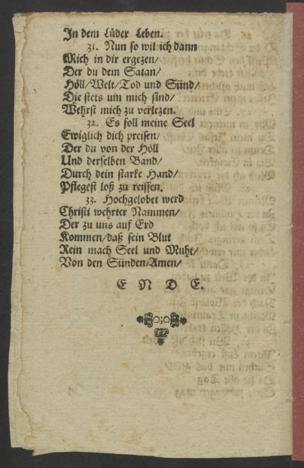 In dem Lüder Leben.
31. Nun so wil ich dann
Mich in dir ergezen/
Der du dem Satan/
Höll/Welt/Tod und Sünd/
Die stets um mich sind/
Wehrst mich zu verlezen.
32. Es soll meine Seel
Ewiglich dich preisen/
Der du von der Höll
Und derselben Band/
Durch dein starke Hand/
Pflegest loß zu reissen.
33. Hochgelobet werd
Christi wehrter Nammen/
Der zu uns auf Erd
Kommen/daß sein Blut
Rein mach Seel und Muht/
Von den Sünden/Amen/
E N D E.